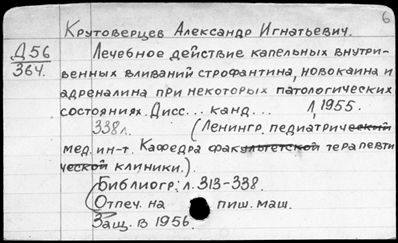 6
Крутоверцев Александр Игнатьевич.
Д56
364.
Лечебное действие капельных внутри-
венных вливаний строфантина, новокаина и
адреналина при некоторых патологических
состояниях. Дисс... канд... Л, 1955.
338 л. (Ленингр. педиатрический
мед. ин-т. Кафедра факультетской терапевти
ческой клиники.).
Библиогр: л. 313-338.
(Отпеч. на пиш. маш.
Защ. в 1956.